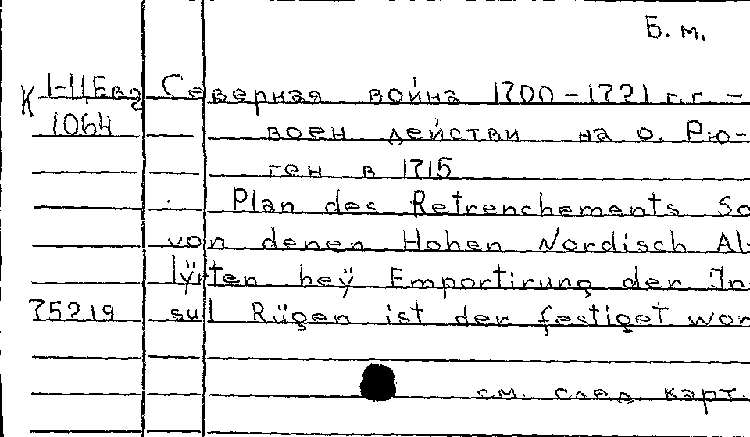 Б. м.
К 1-ЦЕвз Северная война 1700-1721 г.г. -
1064 воен действи на о. Рю-
ген в 1715
Plan des Retrenchements So
von denen Hohen Nordisch Al-
lÿrten beÿ Emportirung der In
75219 sul Rügen ist der festiget wor
см. след карт.